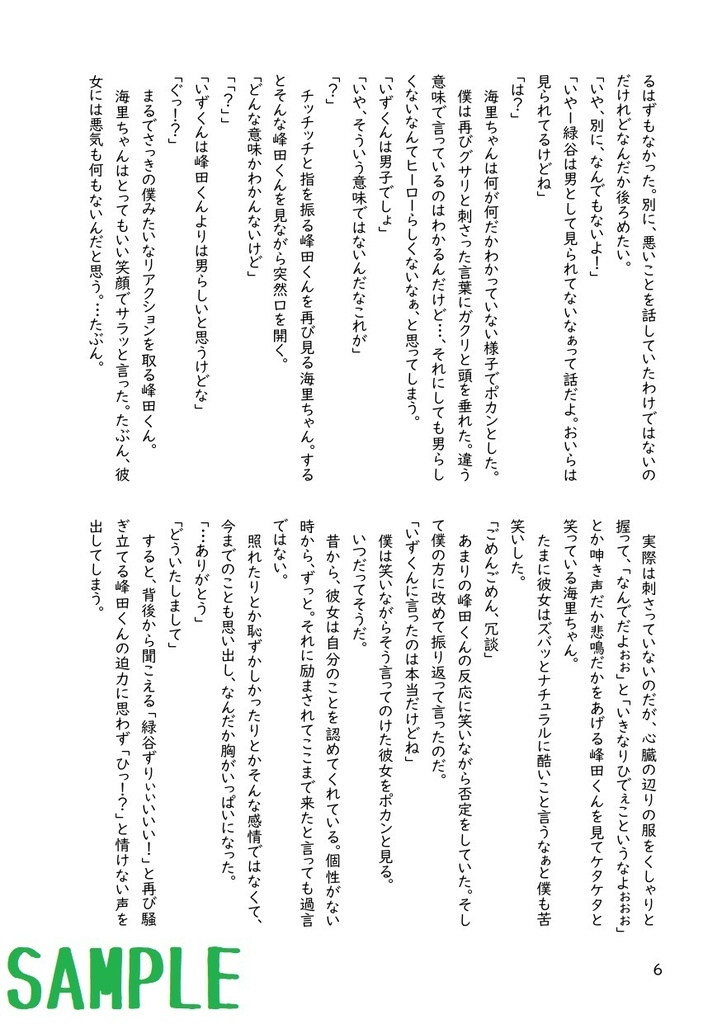 るはずもなかった。別に、悪いことを話していたわけではないの
だけれどなんだか後ろめたい。
「いや、別に、なんでもないよ！」
「いやー緑谷は男として見られてないなぁって話だよ。おいらは
見られてるけどね」
「は？」
海里ちゃんは何が何だかわかっていない様子でポカンとした。
僕は再びグサリと刺さった言葉にガクリと頭を垂れた。違う
意味で言っているのはわかるんだけど…、それにしても男らし
くないなんてヒーローらしくないなぁ、と思ってしまう。
「いずくんは男子でしょ」
「いや、そういう意味ではないんだなこれが」
「？」
チッチッチと指を振る峰田くんを再び見る海里ちゃん。する
とそんな峰田くんを見ながら突然口を開く。
「どんな意味かわかんないけど」
「「？」」
「いずくんは峰田くんよりは男らしいと思うけどな」
「ぐっ！？」
まるでさっきの僕みたいなリアクションを取る峰田くん。
海里ちゃんはとってもいい笑顔でサラッと言った。たぶん、彼
女には悪気も何もないんだと思う。…たぶん。
実際は刺さっていないのだが、心臓の辺りの服をくしゃりと
握って、「なんでだよぉぉ」と「いきなりひでぇこというなよぉぉぉ」
とか呻き声だか悲鳴だかをあげる峰田くんを見てケタケタと
笑っている海里ちゃん。
たまに彼女はズバッとナチュラルに酷いこと言うなぁと僕も苦
笑いした。
「ごめんごめん、冗談」
あまりの峰田くんの反応に笑いながら否定をしていた。そし
て僕の方に改めて振り返って言ったのだ。
「いずくんに言ったのは本当だけどね」
僕は笑いながらそう言ってのけた彼女をポカンと見る。
いつだってそうだ。
昔から、彼女は自分のことを認めてくれている。個性がない
時から、ずっと。それに励まされてここまで来たと言っても過言
ではない。
照れたりとか恥ずかしかったりとかそんな感情ではなくて、
今までのことも思い出し、なんだか胸がいっぱいになった。
「…ありがとう」
「どういたしまして」
すると、背後から聞こえる「緑谷ずりぃぃいいい！」と再び騒
ぎ立てる峰田くんの迫力に思わず「ひっ！？」と情けない声を
出してしまう。
6
SAMPLE